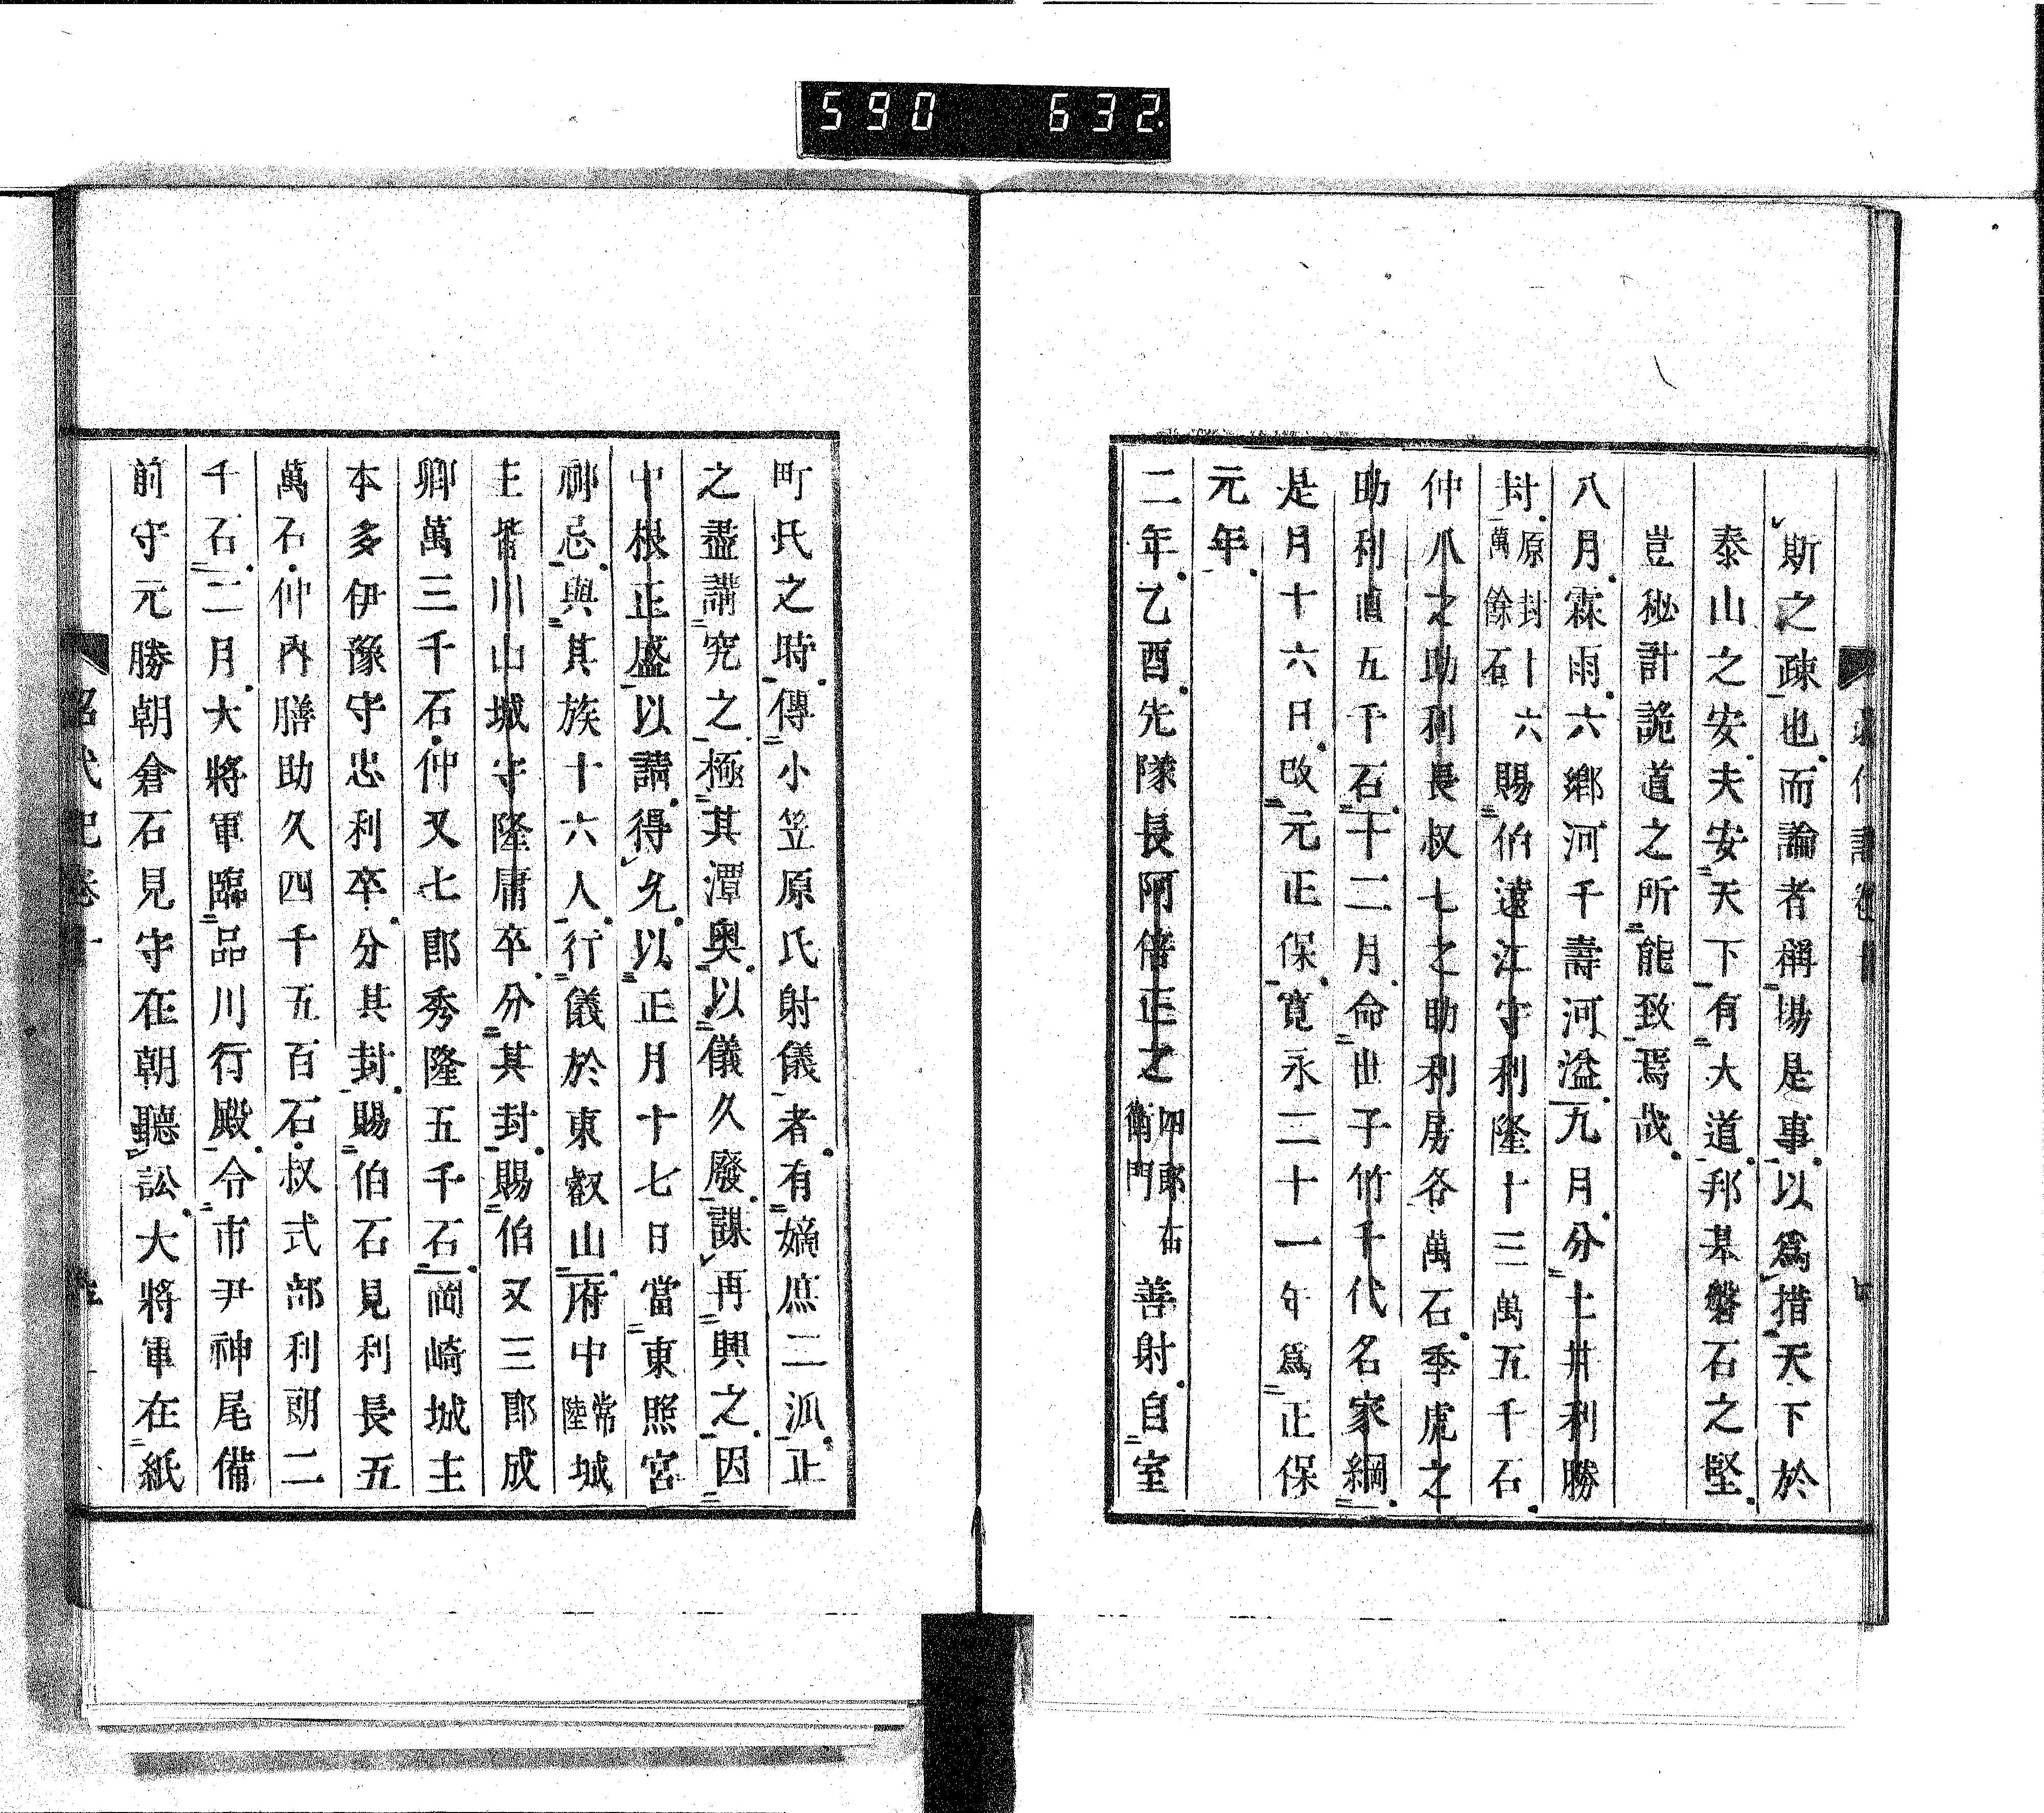 590 632
斯之疎也而論者稱塲是事以爲措天下於
泰山之安夫安天下有大道邦基磐石之堅
豈秘計詭道之所能致焉哉
八月霖雨六鄉河千壽河溢九月分土井利勝
封原封十六萬餘石賜伯遠江守利隆十三萬五千石
仲八之助利長叔七之助利房各萬石季虎之
助利直五千石十二月命世子竹千代名家綱
是月十六日改元正保寬永二十一年爲正保
元年
二年乙酉先隊長阿倍正之四郎右衛門善射自室
町氏之時傳小笠原氏射儀者有嫡庶二派正
之盡講究之極其潭奧以儀久廢謀再興之因
中根正盛以請得允以正月十七日當東照宮
御忌與其族十六人行儀於東叡山府中常陸城
主皆川山城守隆庸卒分其封賜伯又三郎成
卿萬三千石仲又七郎秀隆五千石岡崎城主
本多伊豫守忠利卒分其封賜伯石見利長五
萬石仲內膳助久四千五百石叔式部利朗二
千石二月大將軍臨品川行殿令市尹神尾備
前守元勝朝倉石見守在朝聽訟大將軍在紙
昭代記卷十